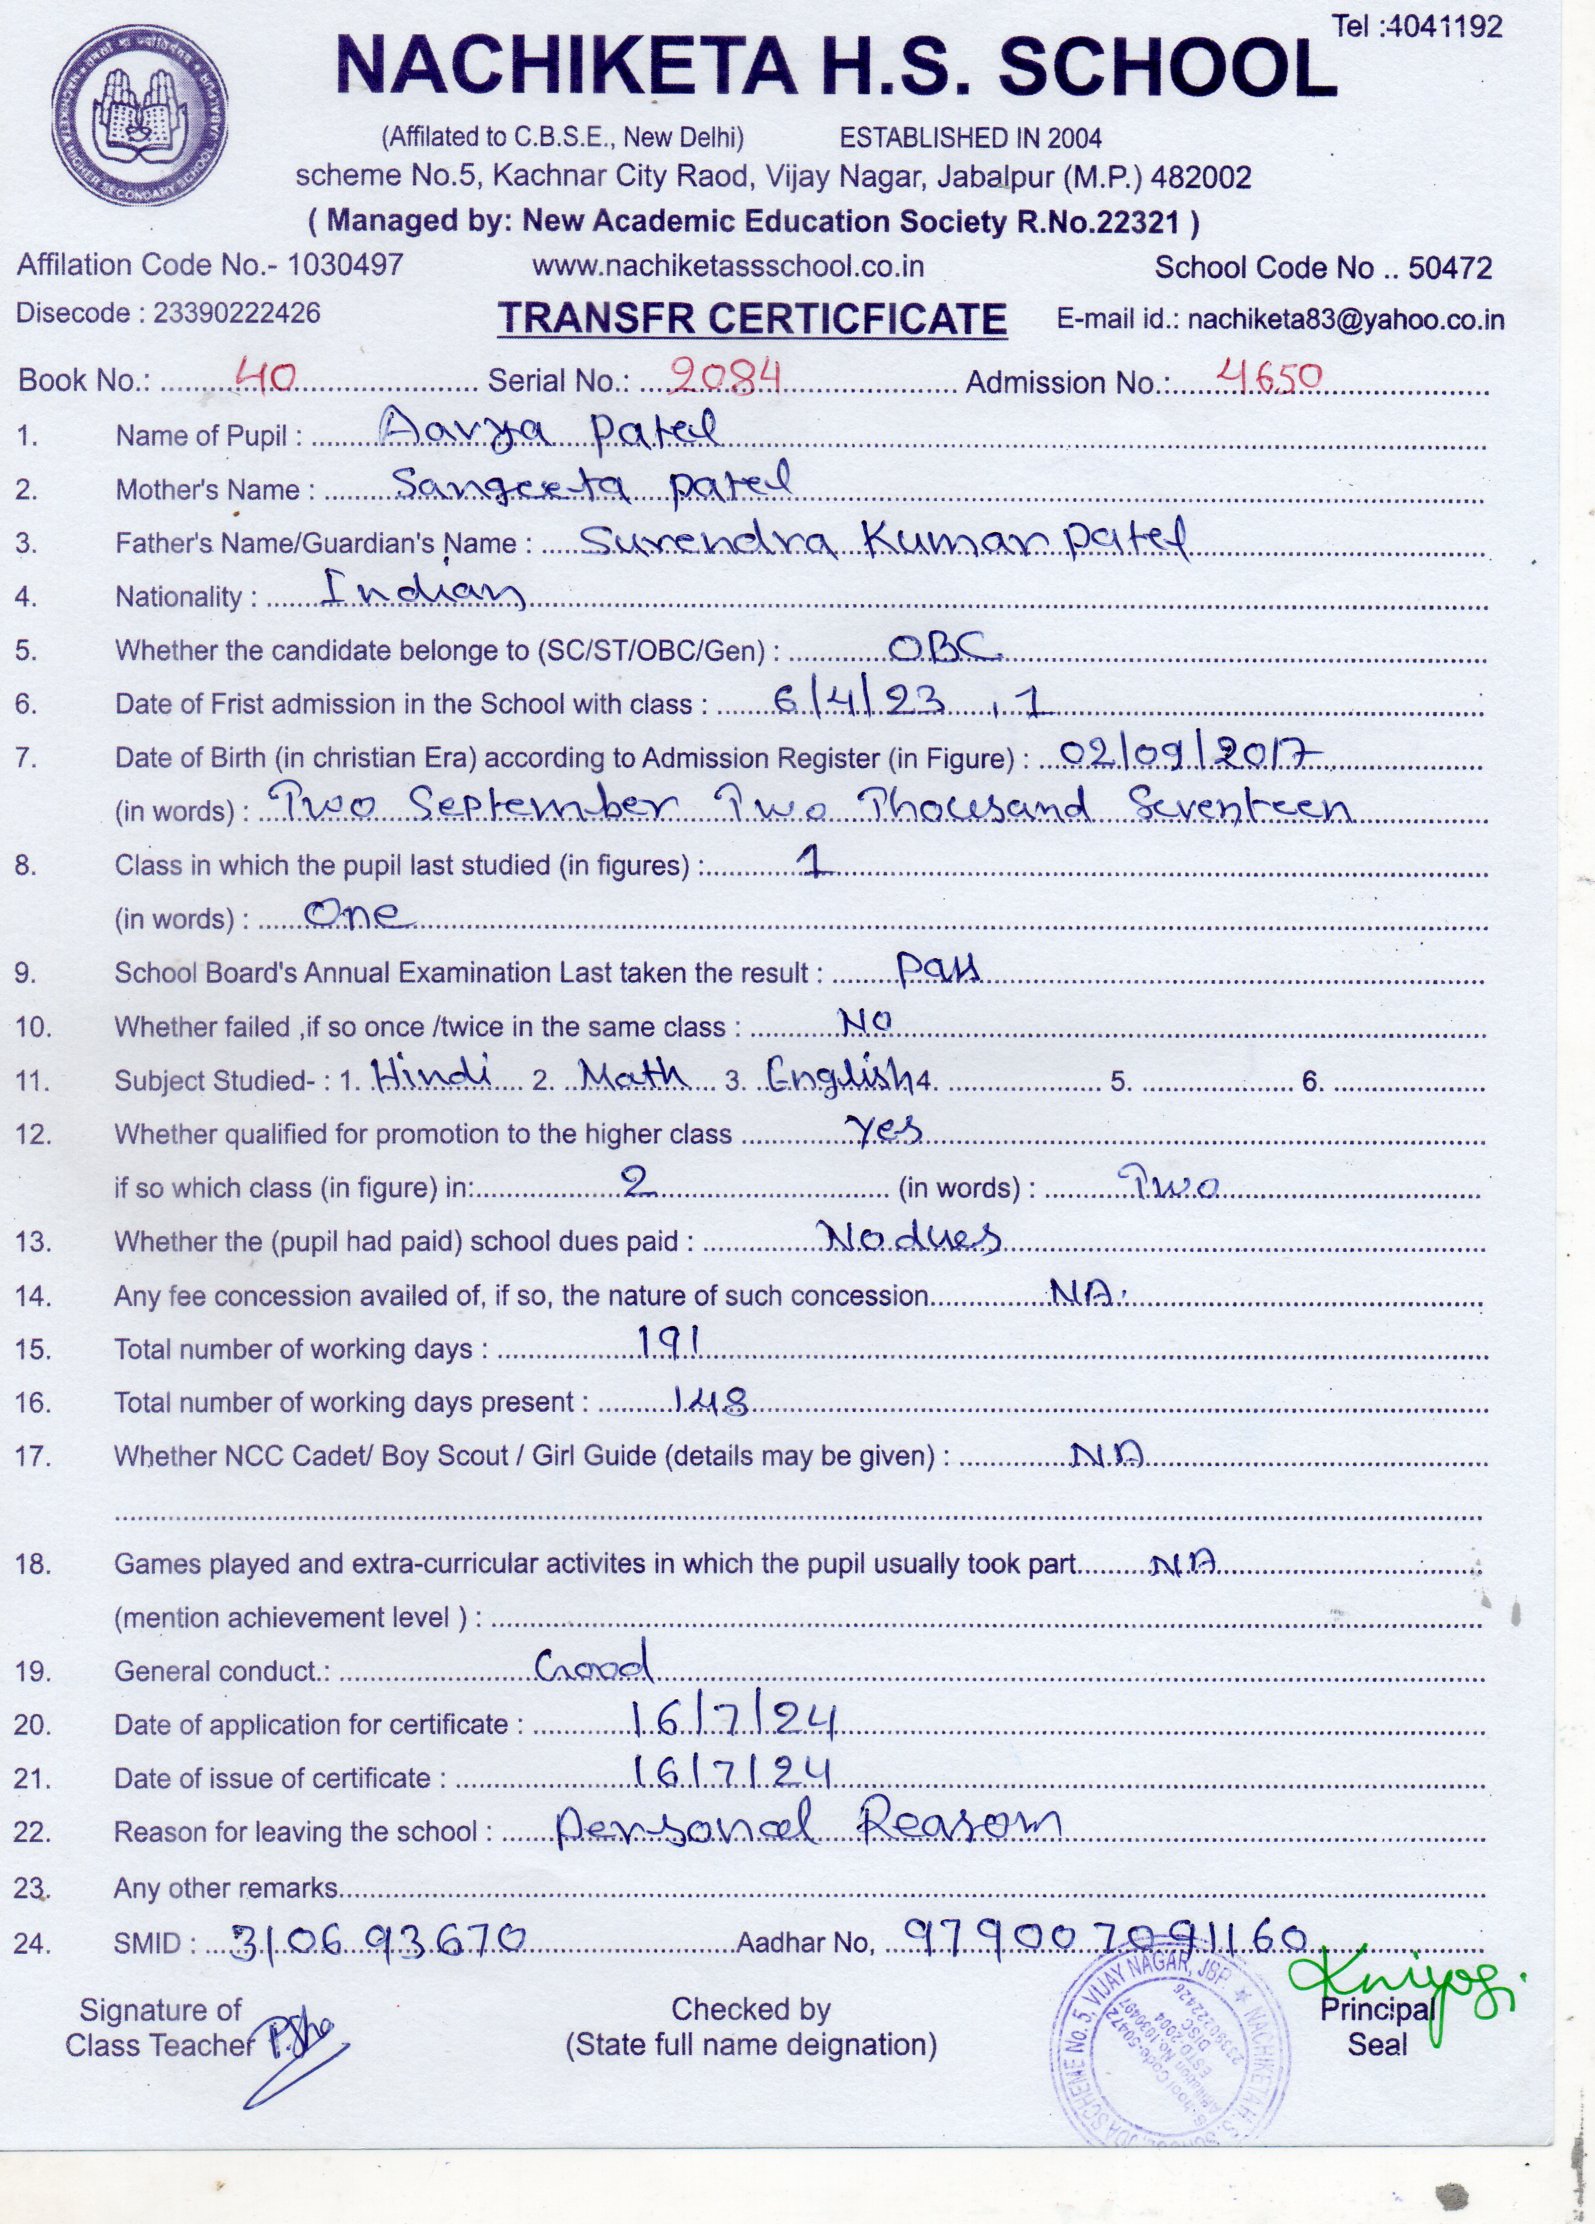 Tel :4041192
NACHIKETA H.S. SCHOOL
(Affilated to C.B.S.E., New Delhi) ESTABLISHED IN 2004
scheme No.5, Kachnar City Raod, Vijay Nagar, Jabalpur (M.P.) 482002
( Managed by: New Academic Education Society R.No.22321 )
Affilation Code No.- 1030497 www.nachiketassschool.co.in School Code No .. 50472
Disecode : 23390222426 TRANSFR CERTICFICATE E-mail id.: nachiketa83@yahoo.co.in
Book No.: 40 Serial No.: 2084 Admission No.: 4650
1. Name of Pupil : Aavya Patel
2. Mother's Name : Sangeeta patel
3. Father's Name/Guardian's Name : Surendra Kumar patel
4. Nationality : Indian
5. Whether the candidate belonge to (SC/ST/OBC/Gen) : OBC
6. Date of Frist admission in the School with class : 6/4/23 , 1
7. Date of Birth (in christian Era) according to Admission Register (in Figure) : 02/09/2017
(in words) : Two September Two Thousand Seventeen
8. Class in which the pupil last studied (in figures) : 1
(in words) : One
9. School Board's Annual Examination Last taken the result : pass
10. Whether failed ,if so once /twice in the same class : No
11. Subject Studied- : 1. Hindi 2. Math 3. English 4. 5. 6.
12. Whether qualified for promotion to the higher class yes
if so which class (in figure) in: 2 (in words) : Two
13. Whether the (pupil had paid) school dues paid : No dues
14. Any fee concession availed of, if so, the nature of such concession NA.
15. Total number of working days : 191
16. Total number of working days present : 148
17. Whether NCC Cadet/ Boy Scout / Girl Guide (details may be given) : NA
18. Games played and extra-curricular activites in which the pupil usually took part NA
(mention achievement level ) :
19. General conduct.: Good
20. Date of application for certificate : 16/7/24
21. Date of issue of certificate : 16/7/24
22. Reason for leaving the school : personal Reason
23. Any other remarks
24. SMID : 310693670 Aadhar No, 979007091160
Signature of Checked by Principal
Class Teacher (State full name deignation) Seal